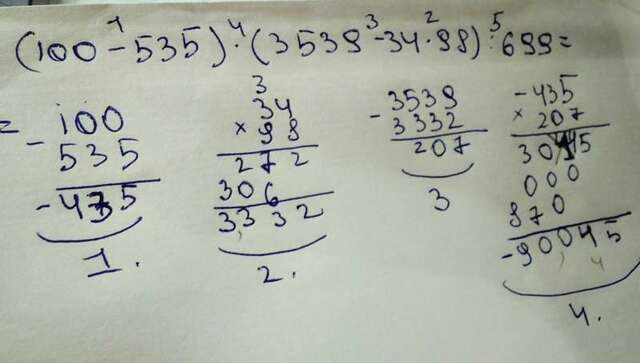 1 4 3 2 5
(100-535)·(3539-34·98):699=
=
-100
535
-435
1.
3
34
×98
272
306
3332
2.
-3539
3332
207
3
-435
×207
3045
000
870
-90045
4.